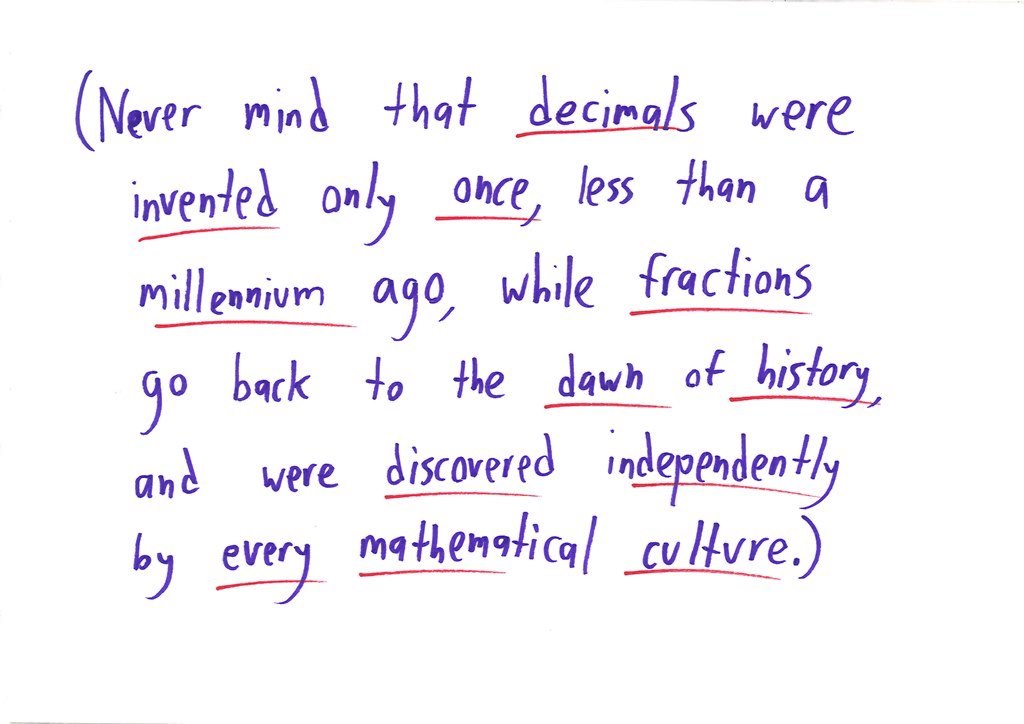 (Never mind that decimals were
invented only once, less than a
millennium ago, while fractions
go back to the dawn of history,
and were discovered independently
by every mathematical culture.)